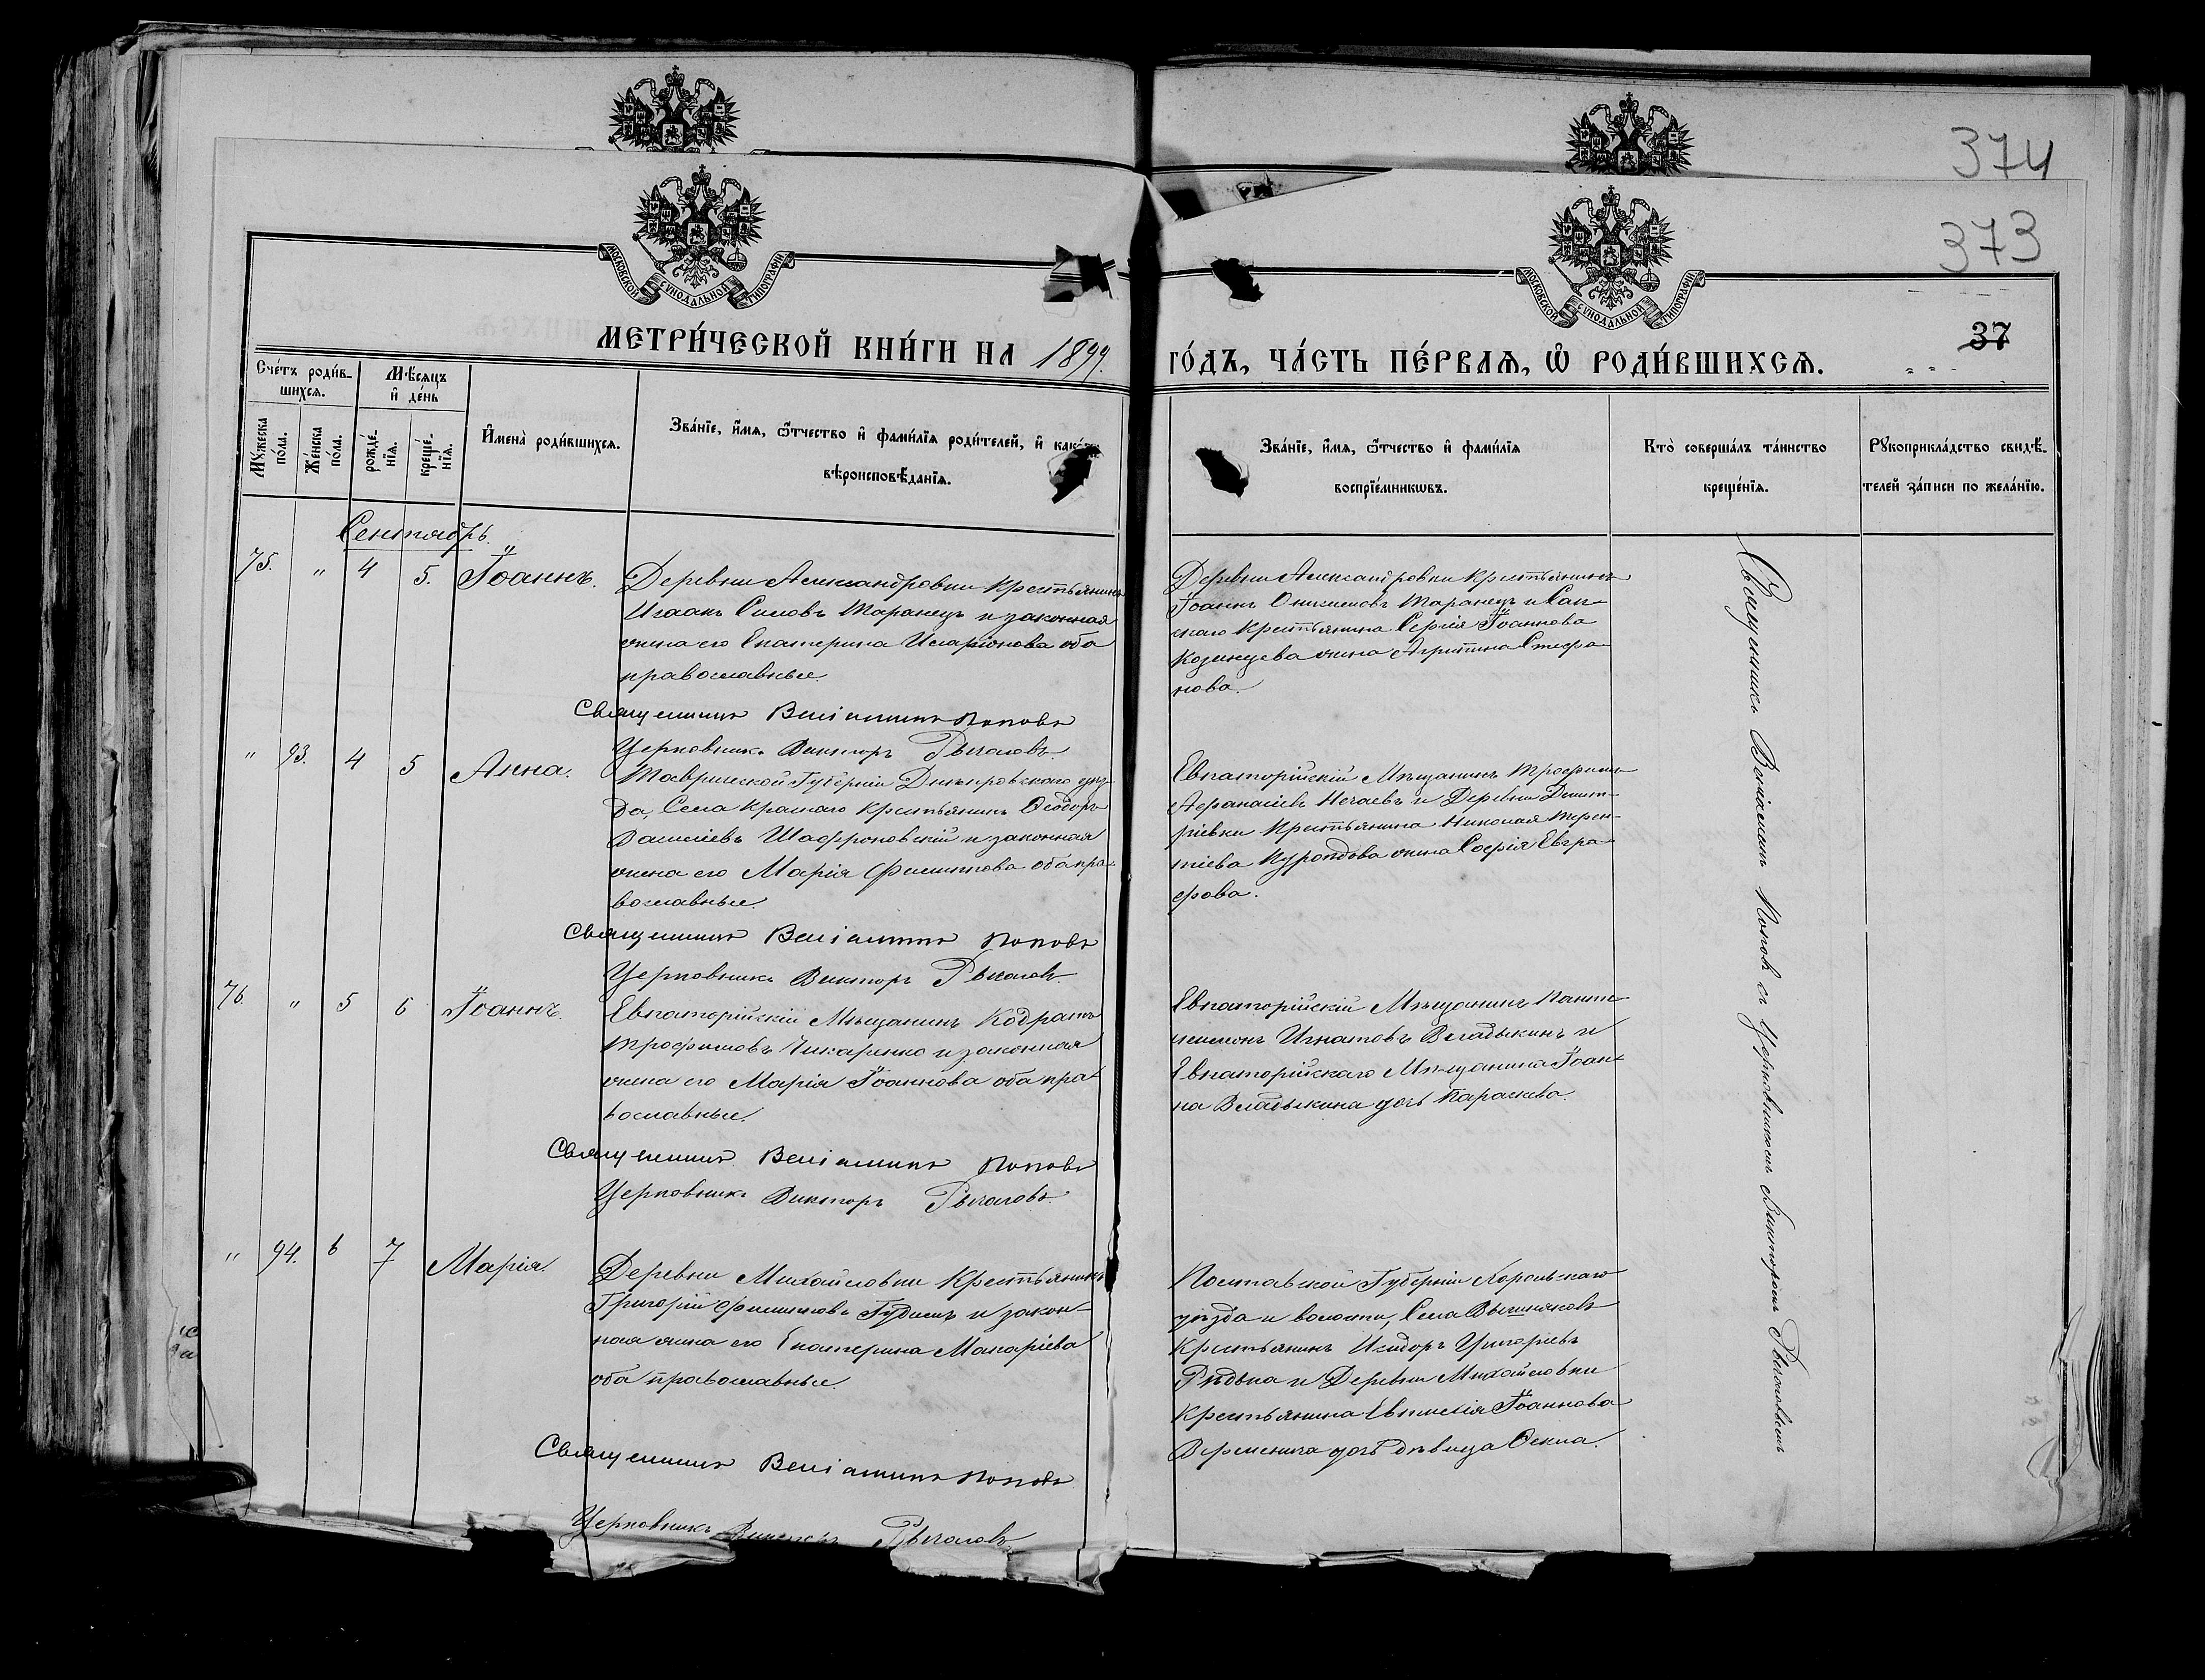 374
373
37
МОСКОВСКОЙ СѴНОДАЛЬНОЙ ТИПОГРАФІИ
МОСКОВСКОЙ СѴНОДАЛЬНОЙ ТИПОГРАФІИ
МЕТРИ́ЧЕСКОЙ КНИ́ГИ НА 1899. ГО́ДЪ, ЧА́СТЬ ПЕ́РВАѦ, Ѿ РОДИ́ВШИХСѦ.
Сче́тъ роди́в-
шихсѧ.
Мꙋ́жеска по́ла.
Же́нска по́ла.
Мѣ́сѧцъ и҆ де́нь
рожде́-
нїѧ.
креще́-
нїѧ.
И҆мена̀ роди́вшихсѧ.
Зва́нїе, и҆́мѧ, ѻ҆́тчество и҆ фами́лїѧ роди́телей, и҆ како́гѡ
вѣроисповѣ́данїѧ.
Зва́нїе, и҆́мѧ, ѻ҆́тчество и҆ фами́лїѧ
воспрїе́мникѡвъ.
Кто̀ соверша́лъ та́инство
креще́нїѧ.
Рꙋкоприкла́дство свидѣ́-
телей за́писи по жела́нїю.
Сентябрь.
75. " 4 5. Іоаннъ.
Деревни Александровки Крестьянинъ
Исаакъ Силовъ Таранецъ и законная
жена его Екатерина Иларіонова оба
православные.
Священникъ Веніаминъ Поповъ
Церковникъ Викторъ Рыхаловъ
Деревни Александровки Крестьянинъ
Іоаннъ Онисимовъ Таранецъ и
Крестьянина Сергія Іоаннова
Козинцева жена Агрипина Стефа-
нова.
" 93. 4 5 Анна.
Таврической Губерніи Днѣпровскаго уѣз-
да, Села Краснаго Крестьянинъ Ѳеодоръ
Василіевъ Шафроновскій и законная
жена его Марія Филиппова оба пра-
вославные.
Священникъ Веніаминъ Поповъ
Церковникъ Викторъ Рыхаловъ
Евпаторійскій Мѣщанинъ Трофимъ
Афанасіевъ Нечаевъ и Деревни Димит-
ріевки Крестьянина Николая Терен-
тіева жена Софія Евгра-
фова.
76. " 5 6 Іоаннъ.
Евпаторійскій Мѣщанинъ Кодратъ
Трофимовъ Чикаренко и законная
жена его Марія Іоаннова оба пра-
вославные.
Священникъ Веніаминъ Поповъ
Церковникъ Викторъ Рыхаловъ
Евпаторійскій Мѣщанинъ Панте-
леимонъ Игнатовъ Владыкинъ и
Евпаторійскаго Мѣщанина Іоан-
на Владыкина дочь Параскева.
" 94. 6 7 Марія.
Деревни Михайловки Крестьянинъ
Григорій Филипповъ и закон-
ная жена его Екатерина Макаріева
оба православные.
Священникъ Веніаминъ Поповъ
Церковникъ Викторъ Рыхаловъ
Полтавской Губерніи Хорольскаго
уѣзда и волости, Села Вишняковъ
Крестьянинъ Исидоръ Григоріевъ
Рѣдька и Деревни Михайловки
Крестьянина Евтихія Іоаннова
дочь дѣвица Ѳекла.
Священникъ Веніаминъ Поповъ съ Церковникомъ Викторомъ Рыхаловымъ